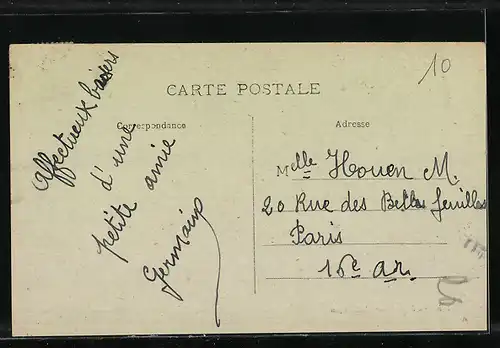 10
CARTE POSTALE
Correspondance
Adresse
Affectueux baisers
d'une
petite amie
Germaine
Melle Houen M.
20 Rue des Belles feuilles
Paris
16e ar.